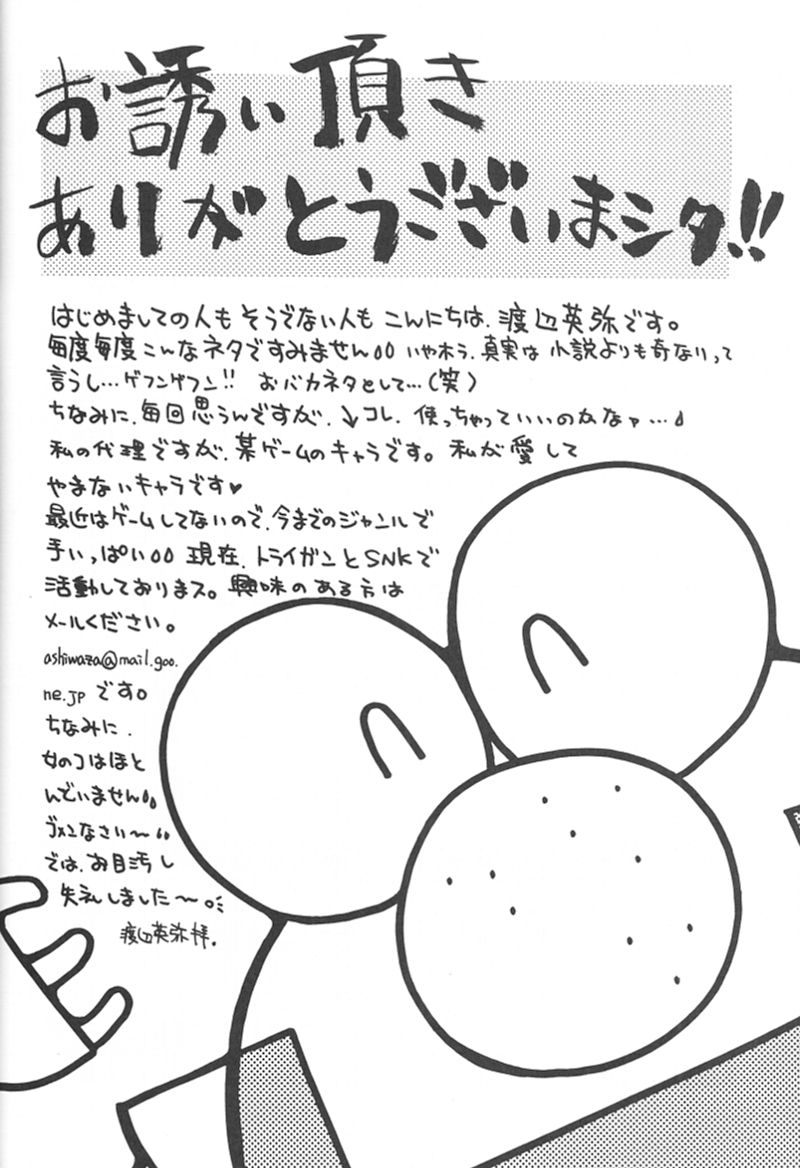 お誘い頂き
ありがとうございまシタ!!
はじめましての人もそうでない人もこんにちは、渡辺英弥です。
毎度毎度こんなネタですみません いやホラ、真実は小説よりも奇なりって
言うし…ゲフンゲフン!! おバカネタとして…(笑)
ちなみに、毎回思うんですが、↓コレ、使っちゃっていいのかなァ…
私の代理ですが、某ゲームのキャラです。私が愛して
やまないキャラです♥
最近はゲームしてないので、今までのジャンルで
手いっぱい 現在、トライガンとSNKで
活動しておりまス。興味のある方は
メールください。
ashiwaza@mail.goo.
ne.jp です。
ちなみに、
女のコはほと
んでいません
ゴメンなさい〜
では、お目汚し
失礼しました〜。
渡辺英弥拝.